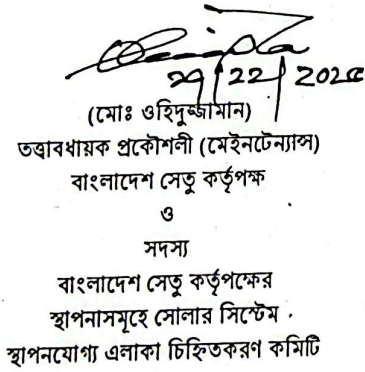 (মোঃ ওহিদুজ্জামান)
তত্ত্বাবধায়ক প্রকৌশলী (মেইনটেন্যান্স)
বাংলাদেশ সেতু কর্তৃপক্ষ
ও
সদস্য
বাংলাদেশ সেতু কর্তৃপক্ষের
স্থাপনাসমূহে সোলার সিস্টেম
স্থাপনযোগ্য এলাকা চিহ্নিতকরণ কমিটি